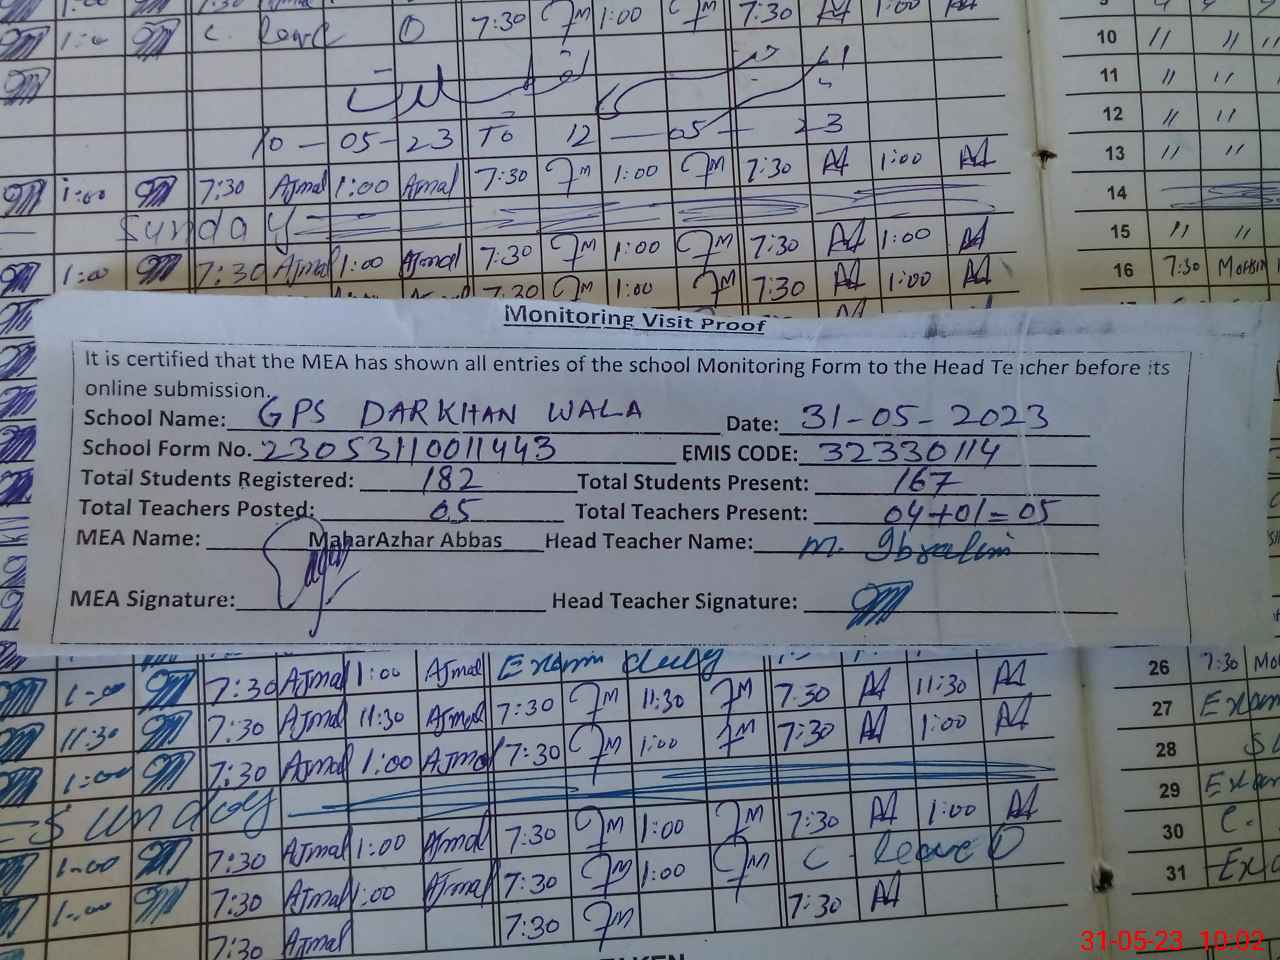 1:00 7:30 Ajmal 7:30 Jm 1:00 Jm 7:30 AA 1:00 AA
1:00 C. leave ① 7:30 Jm 1:00 Jm 7:30 AA 1:00 AA
10 〃 〃 〃
11 〃 〃
12 〃 〃
10 - 05 - 23 To 12 - 05 - 23
1:00 7:30 Ajmal 1:00 Ajmal 7:30 Jm 1:00 Jm 7:30 AA 1:00 AA
13 〃 〃
Sunday
14
1:00 7:30 Ajmal 1:00 Ajmal 7:30 Jm 1:00 Jm 7:30 AA 1:00 AA
15 〃 〃
7:30 Jm 1:00 Jm 7:30 AA 1:00 AA
16 7:30 Mohsin
Monitoring Visit Proof
It is certified that the MEA has shown all entries of the school Monitoring Form to the Head Teacher before its
online submission.
School Name: GPS DARKHAN WALA Date: 31-05-2023
School Form No. 23053110011443 EMIS CODE: 32330114
Total Students Registered: 182 Total Students Present: 167
Total Teachers Posted: 05 Total Teachers Present: 04+01=05
MEA Name: MaharAzhar Abbas Head Teacher Name: M. Ibrahim
MEA Signature: Head Teacher Signature:
1:00 7:30 Ajmal 1:00 Ajmal Exam duty
26 7:30
11:30 7:30 Ajmal 11:30 Ajmal 7:30 Jm 11:30 Jm 7:30 AA 11:30 AA
27 Exam
1:00 7:30 Ajmal 1:00 Ajmal 7:30 Jm 1:00 Jm 7:30 AA 1:00 AA
28
Sunday
29 Exam
1:00 7:30 Ajmal 1:00 Ajmal 7:30 Jm 1:00 Jm 7:30 AA 1:00 AA
30 C.
1:00 7:30 Ajmal 1:00 Ajmal 7:30 Jm 1:00 Jm C. leave ①
31 Exa
7:30 Ajmal 7:30 Jm 7:30 AA
TAKEN
31-05-23 10:02